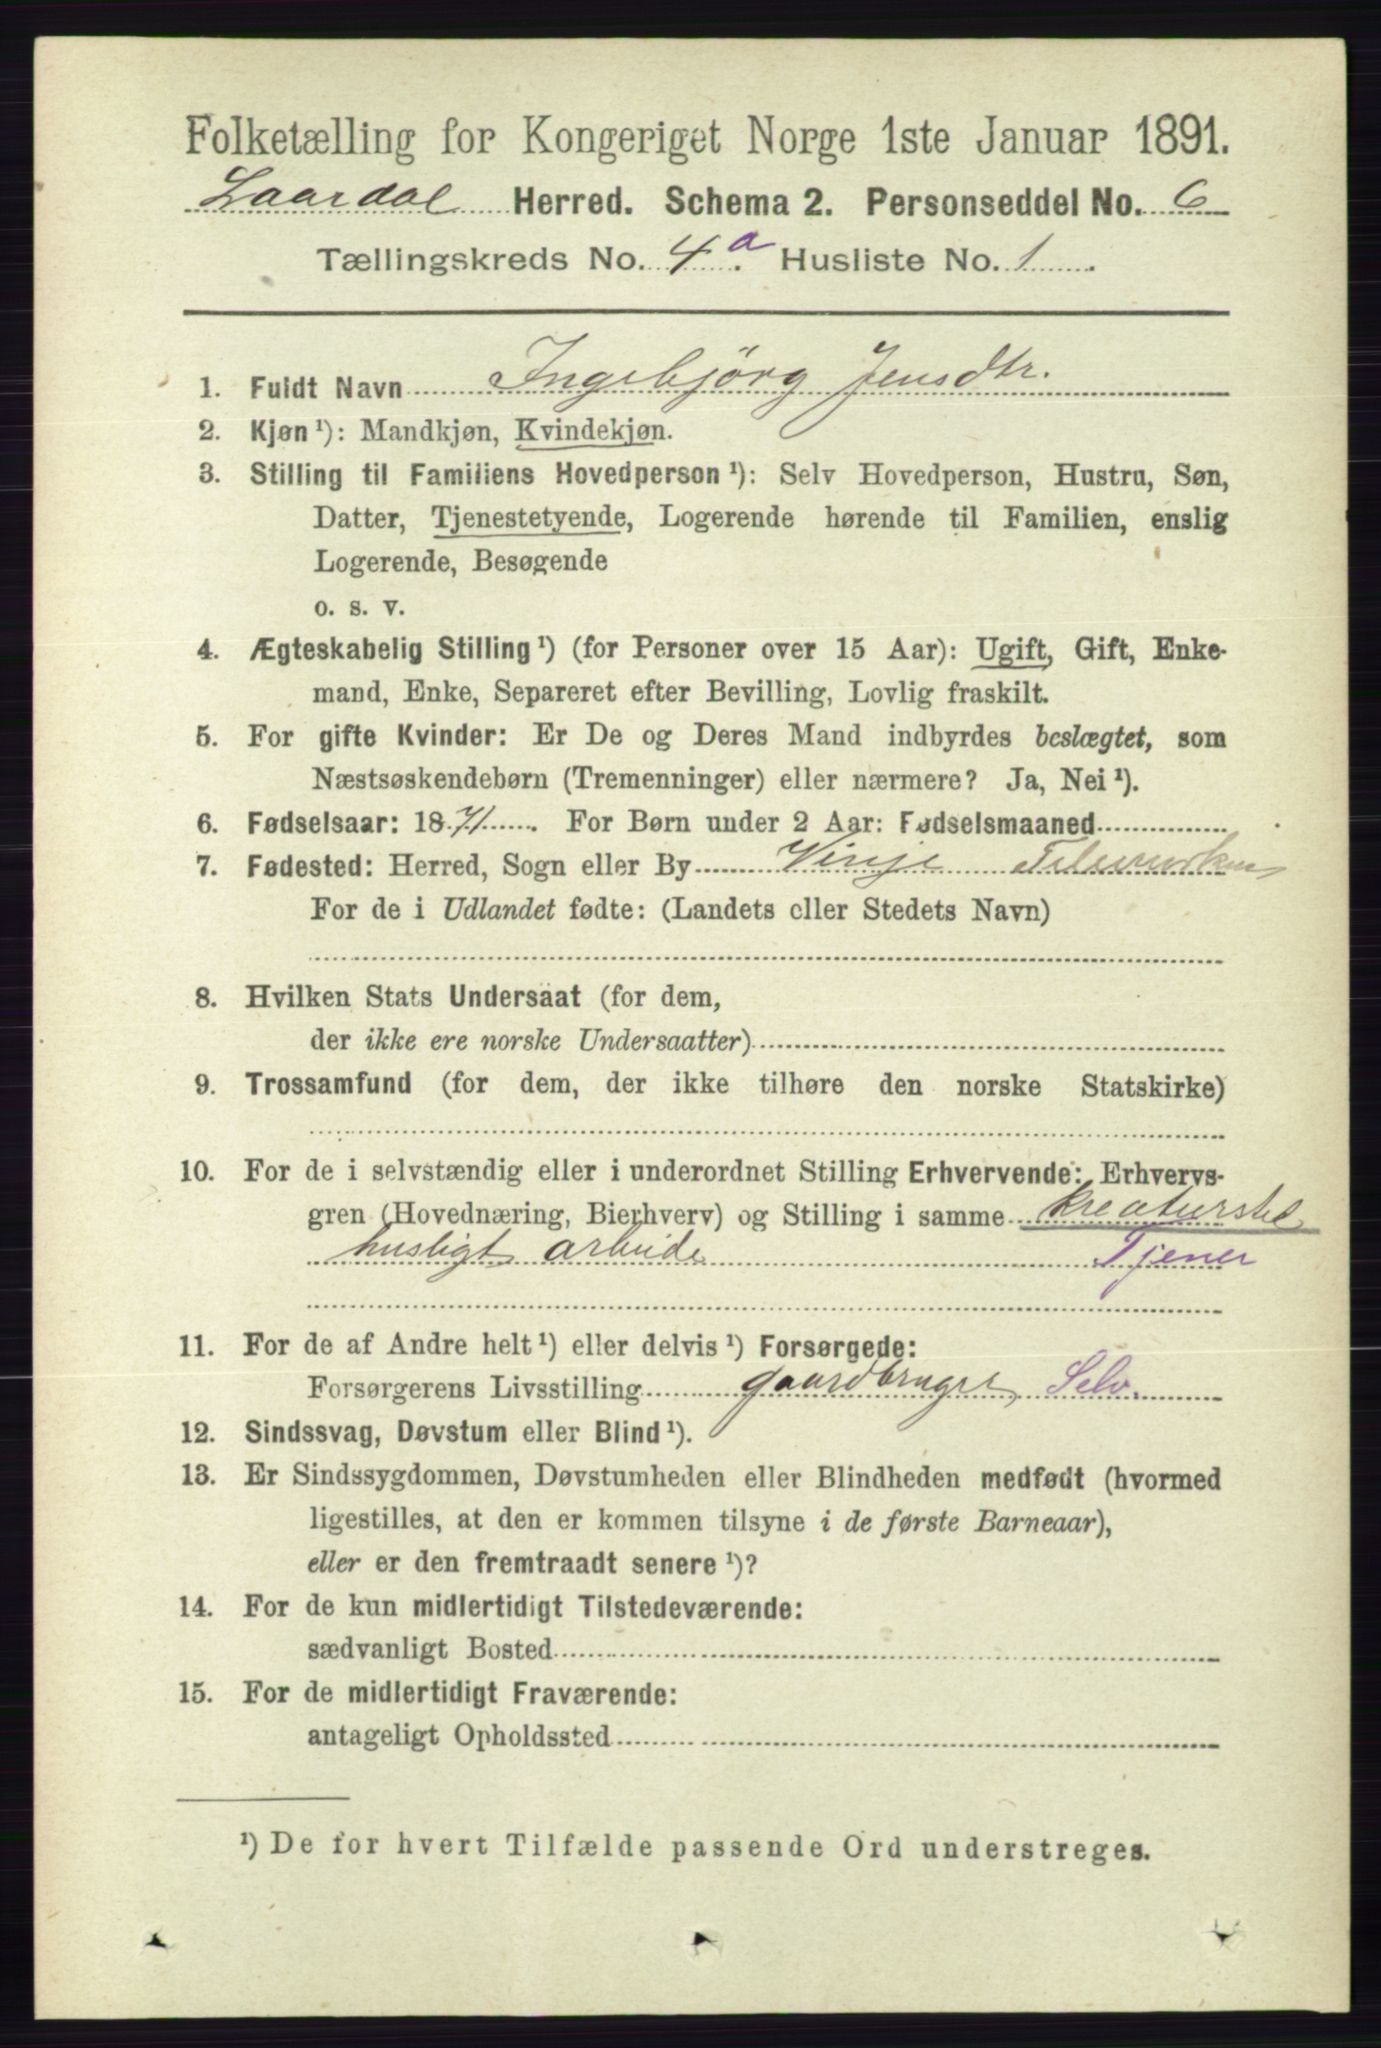 Folketælling for Kongeriget Norge 1ste Januar 1891.
Laardal Herred. Schema 2. Personseddel No. 6
Tællingskreds No. 4a. Husliste No. 1
1. Fuldt Navn Ingebjörg Jensdtr.
2. Kjøn ¹): Mandkjøn, Kvindekjøn.
3. Stilling til Familiens Hovedperson ¹): Selv Hovedperson, Hustru, Søn,
Datter, Tjenestetyende, Logerende hørende til Familien, enslig
Logerende, Besøgende
o. s. v.
4. Ægteskabelig Stilling ¹) (for Personer over 15 Aar): Ugift, Gift, Enke-
mand, Enke, Separeret efter Bevilling, Lovlig fraskilt.
5. For gifte Kvinder: Er De og Deres Mand indbyrdes beslægtet, som
Næstsøskendebørn (Tremenninger) eller nærmere? Ja, Nei ¹).
6. Fødselsaar: 1871. For Børn under 2 Aar: Fødselsmaaned
7. Fødested: Herred, Sogn eller By Vinje Telemarken
For de i Udlandet fødte: (Landets eller Stedets Navn)
8. Hvilken Stats Undersaat (for dem,
der ikke ere norske Undersaatter)
9. Trossamfund (for dem, der ikke tilhøre den norske Statskirke)
10. For de i selvstændig eller i underordnet Stilling Erhvervende: Erhvervs-
gren (Hovednæring, Bierhverv) og Stilling i samme kreaturstel
husligt arbeide Tjener
11. For de af Andre helt ¹) eller delvis ¹) Forsørgede:
Forsørgerens Livsstilling gaardbruger Selv.
12. Sindssvag, Døvstum eller Blind ¹).
13. Er Sindssygdommen, Døvstumheden eller Blindheden medfødt (hvormed
ligestilles, at den er kommen tilsyne i de første Barneaar),
eller er den fremtraadt senere ¹)?
14. For de kun midlertidigt Tilstedeværende:
sædvanligt Bosted
15. For de midlertidigt Fraværende:
antageligt Opholdssted
¹) De for hvert Tilfælde passende Ord understreges.